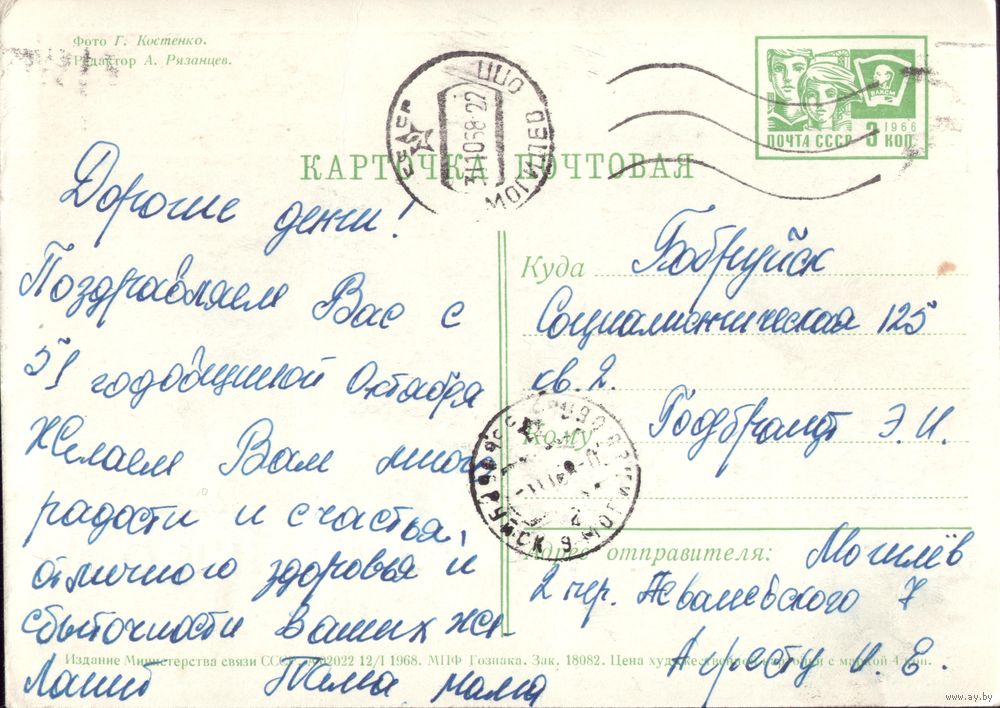 Фото Г. Костенко.
Редактор А. Рязанцев.
СССР ЦПО МОГИЛЕВ
311068-22
ВЛКСМ
1966
ПОЧТА СССР 3 КОП
КАРТОЧКА ПОЧТОВАЯ
Дорогие дети!
Поздравляем Вас с
51 годовщиной Октября
Желаем Вам много
радости и счастья,
отличного здоровья и
сбыточности Ваших же-
ланий Папа мама
Куда Бобруйск
Социалистическая 125
кв. 2.
Кому Годбрандт Э. И.
Адрес отправителя: Могилёв
2 пер. 7
И. Е.
Издание Министерства связи СССР. А02022 12/I 1968. МПФ Гознака. Зак. 18082. Цена художественной карточки с маркой 4 коп.
www.ay.by